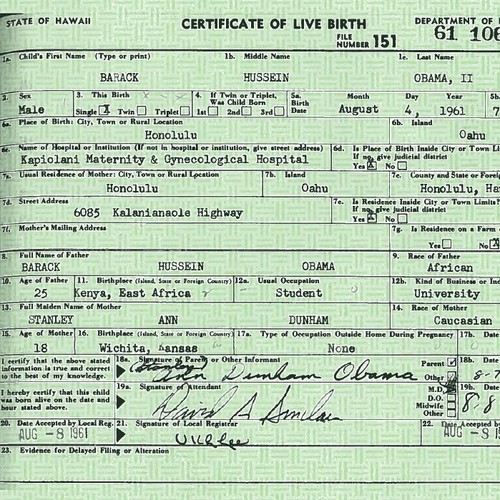 STATE OF HAWAII CERTIFICATE OF LIVE BIRTH DEPARTMENT OF
FILE NUMBER 151 61 106
1a. Child's First Name (Type or print) 1b. Middle Name 1c. Last Name
BARACK HUSSEIN OBAMA, II
2. Sex 3. This Birth 4. If Twin or Triplet, Was Child Born 5a. Birth Date Month Day Year 5b.
Male Single X Twin Triplet 1st 2nd 3rd August 4, 1961 7
6a. Place of Birth: City, Town or Rural Location 6b. Island
Honolulu Oahu
6c. Name of Hospital or Institution (If not in hospital or institution, give street address) 6d. Is Place of Birth Inside City or Town Li
If no, give judicial district
Kapiolani Maternity & Gynecological Hospital Yes X No
7a. Usual Residence of Mother: City, Town or Rural Location 7b. Island 7c. County and State or Foreig
Honolulu Oahu Honolulu, Ha
7d. Street Address 7e. Is Residence Inside City or Town Limits?
If no, give judicial district
6085 Kalanianaole Highway Yes X No
7f. Mother's Mailing Address 7g. Is Residence on a Farm
Yes No X
8. Full Name of Father 9. Race of Father
BARACK HUSSEIN OBAMA African
10. Age of Father 11. Birthplace (Island, State or Foreign Country) 12a. Usual Occupation 12b. Kind of Business or Ind
25 Kenya, East Africa Student University
13. Full Maiden Name of Mother 14. Race of Mother
STANLEY ANN DUNHAM Caucasian
15. Age of Mother 16. Birthplace (Island, State or Foreign Country) 17a. Type of Occupation Outside Home During Pregnancy 17b. Date
18 Wichita, Kansas None
I certify that the above stated information is true and correct to the best of my knowledge. 18a. Signature of Parent or Other Informant Parent Other 18b.
(Stanley) Ann Dunham Obama 8-7
I hereby certify that this child was born alive on the date and hour stated above. 19a. Signature of Attendant M.D. D.O. Midwife Other 19b.
David A Sinclair 8-8
20. Date Accepted by Local Reg. 21. Signature of Local Registrar 22. Date Accepted
AUG -8 1961 U K Lee AUG -8
23. Evidence for Delayed Filing or Alteration